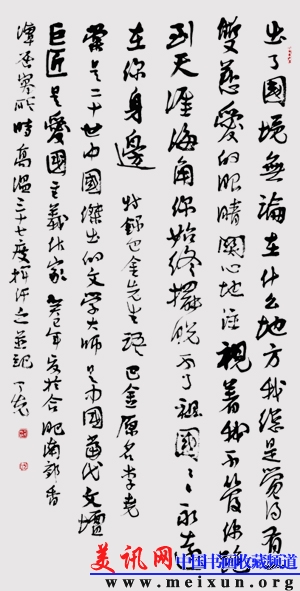 出了國境無論在什么地方我總是覺得有一
雙慈愛的眼睛關心地注視着我不管你跑
到天涯海角你始終擺脫不了祖國〻〻永遠
在你身邊 抄錄巴金先生語 巴金原名李堯
棠是二十世中國傑出的文學大師是中國當代文壇
巨匠是愛國主義作家 癸巳年夏於合肥南郊香
潭 寓所時高溫三十七度揮汗之並記
美讯网
中国书画收藏频道
www.meixun.org